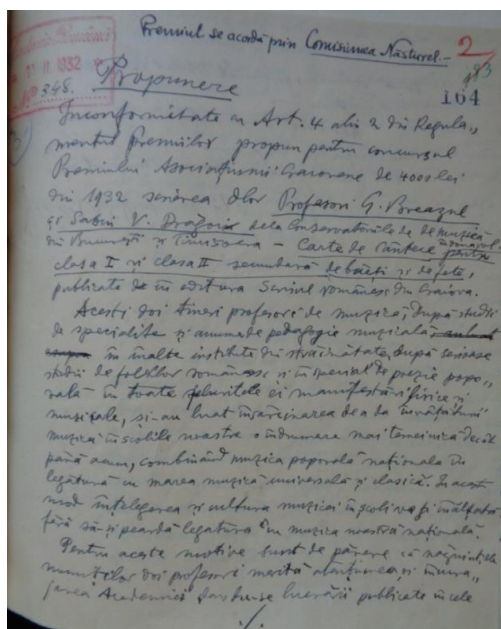 Premiul se acordă prin Comisiunea Năsturel.-
2
11 1932
No 348.
Propunere
164
In conformitate cu Art. 4 alin 2 din Regula„
mentul Premiilor propun pentru concursul
Premiului Asociațiunii Craiovene de 4000 lei
din 1932 scrierea Dlor Profesori G. Breazul
și Sabin V. Drăgoi dela Conservatoriile de muzică
din București și Timișoara – Carte de cântece pentru
clasa I și clasa II secundară de băeți și de fete,
publicate în editura Scrisul românesc din Craiova.
Acești doi tineri profesori de muzică, după studii
de specialitate și anume de pedagogie muzicală
în înalte institute din străinătate, după serioase
studii de folklor românesc și în special de poezie popo„
rală în toate feluritele ei manifestări lirice și
muzicale, și-au luat însărcinarea de a da învățăturii
muzicii în școlile noastre o îndrumare mai temeinică decât
până acum, combinând muzica poporală națională în
legătură cu marea muzică universală și clasică. In acest
mod înțelegerea și cultura muzicii în școli va fi înălțată
fără să-și peardă legătura cu muzica noastră națională.
Pentru aceste motive sunt de părere că năzuințele
numiților doi profesori merită atențiunea și încura„
jarea Academiei lucrării publicate în cele
./.